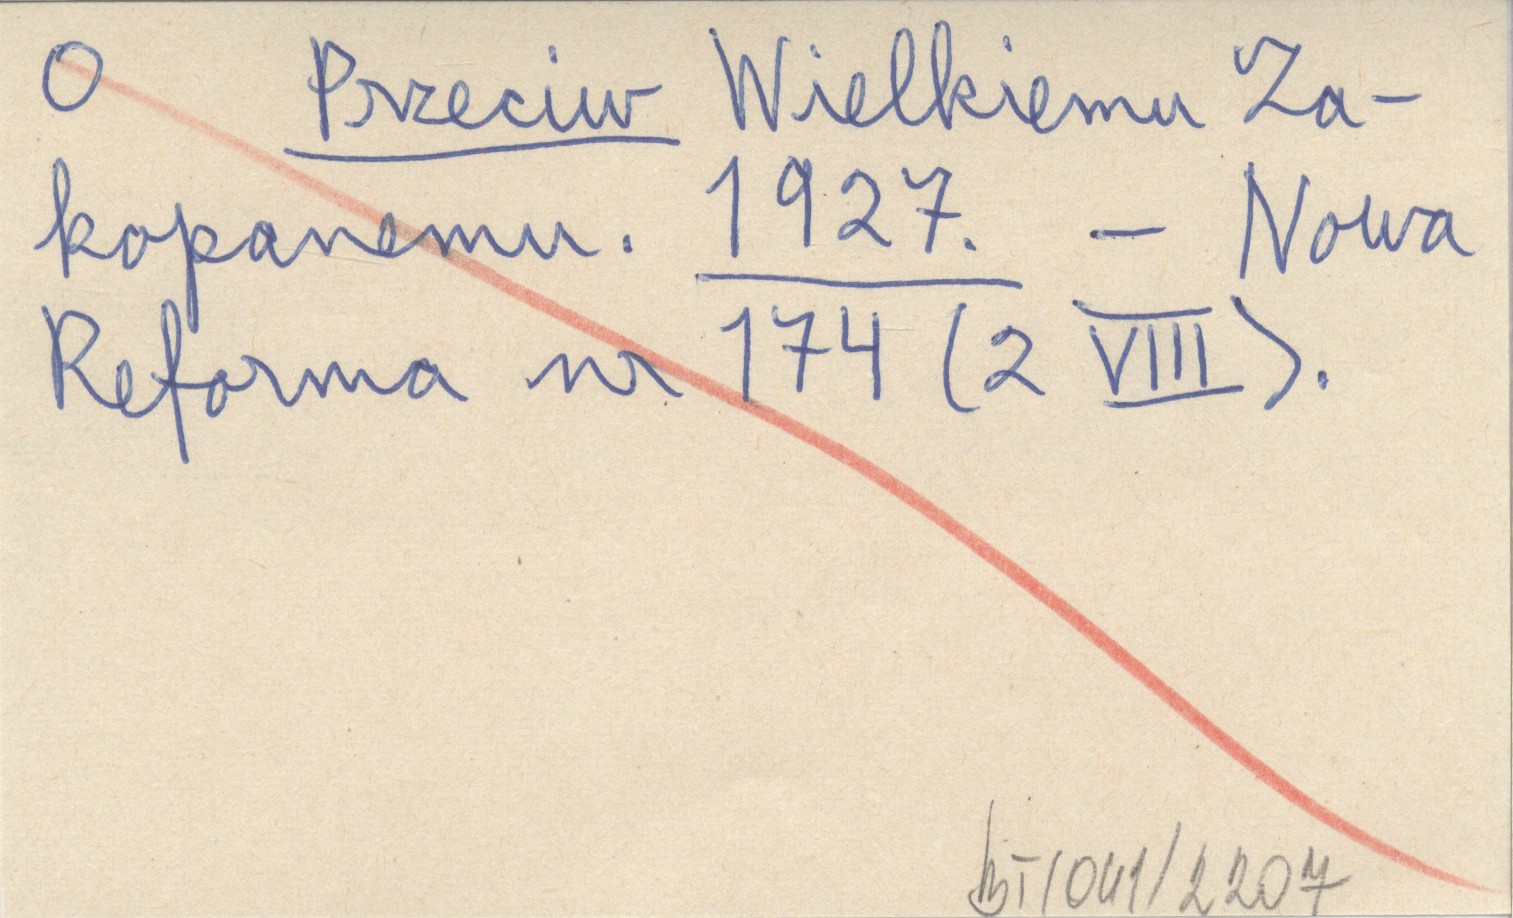 O Przeciw Wielkiemu Za-
kopanemu. 1927. - Nowa
Reforma nr 174 (2 VIII).
/041/2207